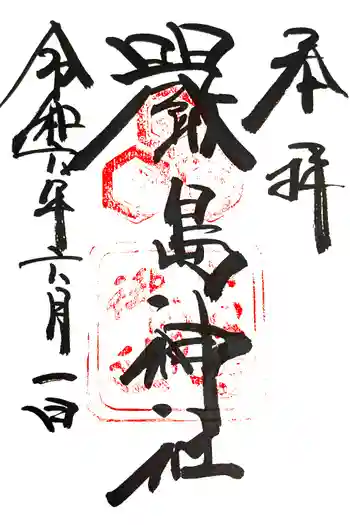 奉拝
厳島神社
令和六年六月一日